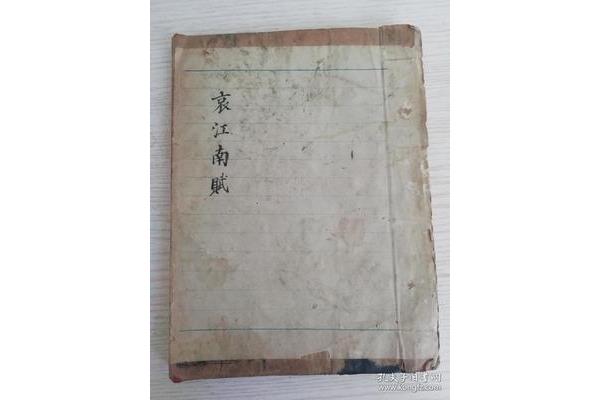 哀江南賦
孔夫子旧书网
www.kongfz.com